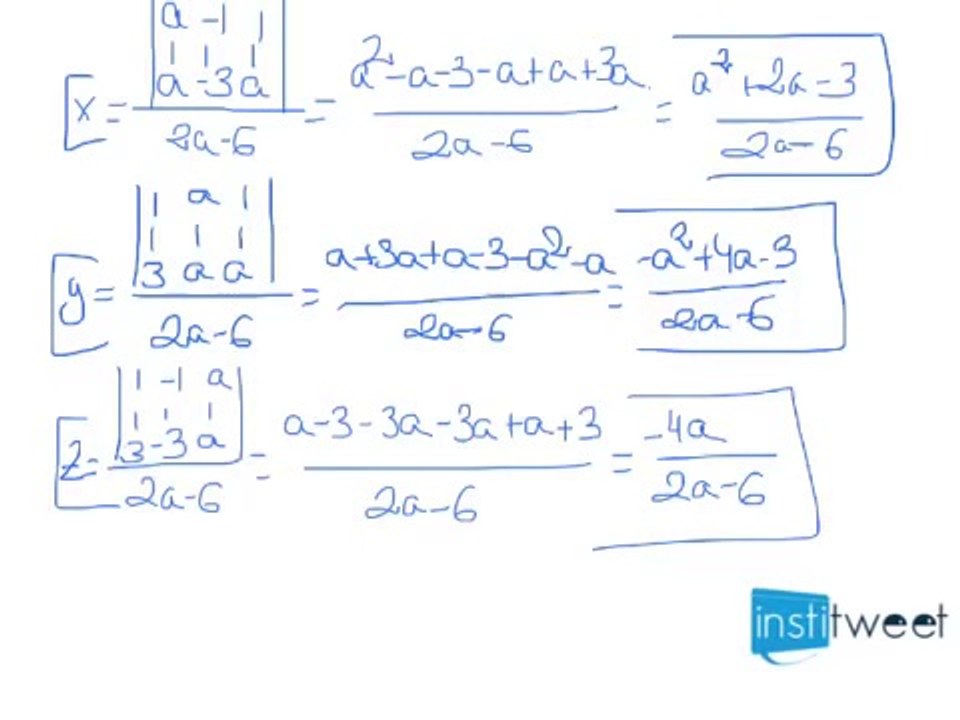 |a -1 1|
|1 1 1|
x = |a -3 a| / 2a-6 = a²-a-3-a+a+3a / 2a-6 = a²+2a-3 / 2a-6
|1 a 1|
|1 1 1|
y = |3 a a| / 2a-6 = a+3a+a-3-a²-a / 2a-6 = -a²+4a-3 / 2a-6
|1 -1 a|
|1 1 1|
z = |3 -3 a| / 2a-6 = a-3-3a-3a+a+3 / 2a-6 = -4a / 2a-6
institweet